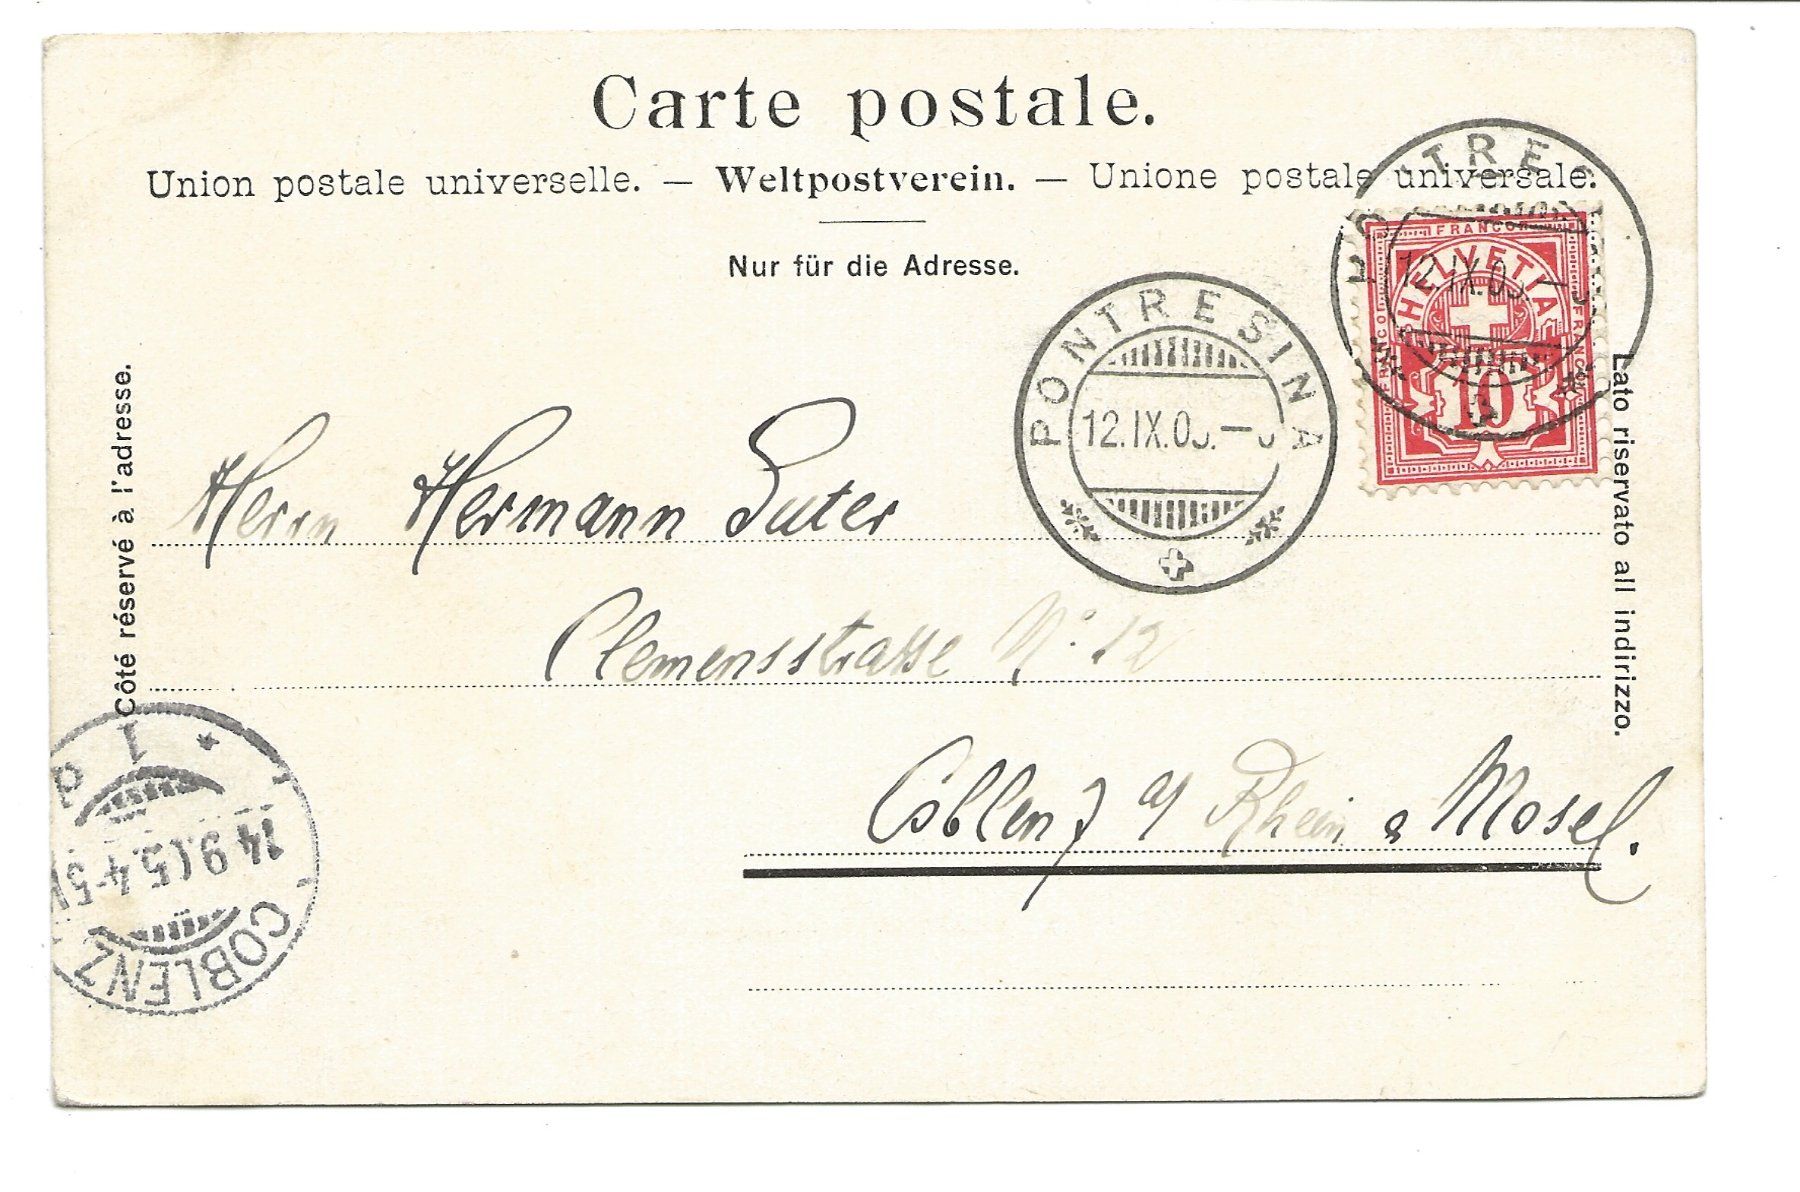 Carte postale.
Union postale universelle. — Weltpostverein. — Unione postale universale.
Nur für die Adresse.
Côté réservé à l'adresse.
Lato riservato all indirizzo.
PONTRES
12.IX.05.–
FRANCO
HELVETIA
FRANCO
FRANCO
10
PONTRESINA
12.IX.05.–
Herrn Hermann Suter
Clemensstrasse No. 12
Coblenz a/ Rhein & Mosel.
COBLENZ
14.9.05.4-5
* 1